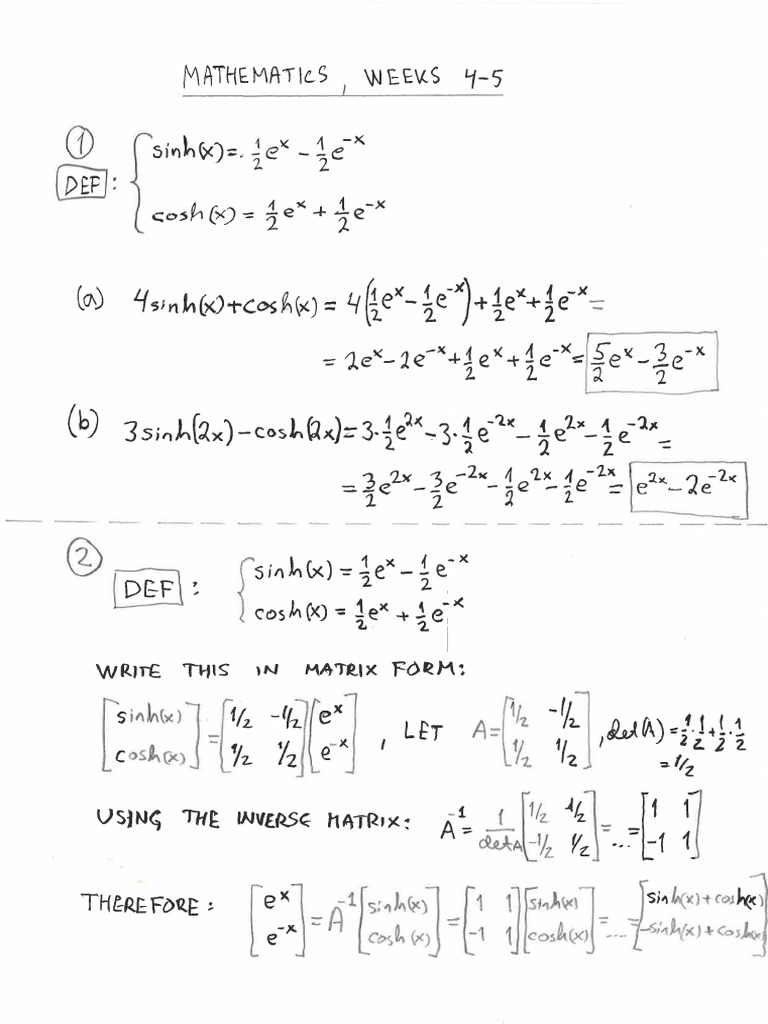 MATHEMATICS, WEEKS 4-5
① DEF: { sinh(x)=. 1/2 e^x - 1/2 e^-x
cosh(x) = 1/2 e^x + 1/2 e^-x
(a) 4sinh(x)+cosh(x) = 4(1/2 e^x - 1/2 e^-x) + 1/2 e^x + 1/2 e^-x =
= 2e^x - 2e^-x + 1/2 e^x + 1/2 e^-x = 5/2 e^x - 3/2 e^-x
(b) 3sinh(2x)-cosh(2x) = 3·1/2 e^2x - 3·1/2 e^-2x - 1/2 e^2x - 1/2 e^-2x =
= 3/2 e^2x - 3/2 e^-2x - 1/2 e^2x - 1/2 e^-2x = e^2x - 2e^-2x
② DEF: { sinh(x) = 1/2 e^x - 1/2 e^-x
cosh(x) = 1/2 e^x + 1/2 e^-x
WRITE THIS IN MATRIX FORM:
[sinh(x); cosh(x)] = [1/2 -1/2; 1/2 1/2] [e^x; e^-x], LET A = [1/2 -1/2; 1/2 1/2], det(A) = 1/2·1/2 + 1/2·1/2
= 1/2
USING THE INVERSE MATRIX: A^-1 = 1/detA [1/2 1/2; -1/2 1/2] = ... = [1 1; -1 1]
THEREFORE: [e^x; e^-x] = A^-1 [sinh(x); cosh(x)] = [1 1; -1 1] [sinh(x); cosh(x)] = ... = [sinh(x)+cosh(x); -sinh(x)+cosh(x)]